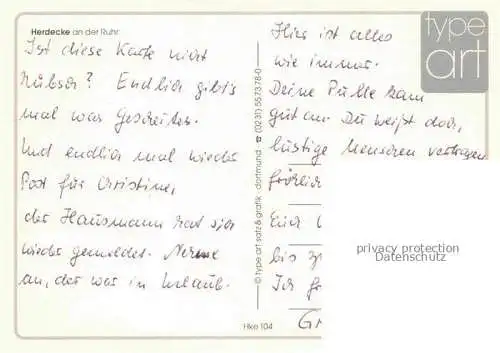 Herdecke an der Ruhr
Ist diese Karte nicht
hübsch? Endlich gibt's
mal was Gescheites.
Und endlich mal wieder
Post für Christine,
der Hausmann hat sich
wieder gemeldet. Nehme
an, der war in Urlaub.
© type art satz & grafik · dortmund · ☎ (0231) 55 73 78-0
Hke 104
type
art
Hier ist alles
wie immer.
Deine Pulle kam
gut an. Du weißt doch,
lustige Menschen vertragen
Euch
bis
Ich
privacy protection
Datenschutz